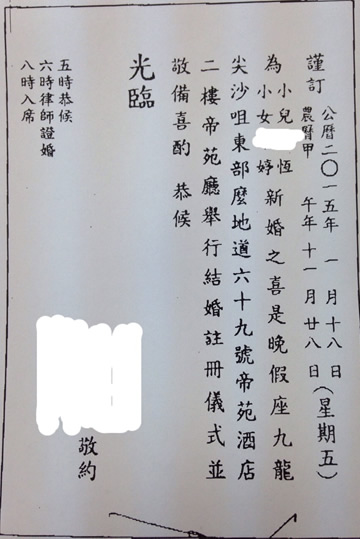 謹訂
公曆二〇一五年 一月十八日
農曆甲午年十一月廿八日(星期五)
為
小兒 恆
小女 婷
新婚之喜是晚假座九龍
尖沙咀東部麼地道六十九號帝苑酒店
二樓帝苑廳舉行結婚註冊儀式並
敬備喜酌 恭候
光臨
敬約
五時恭候
六時律師證婚
八時入席